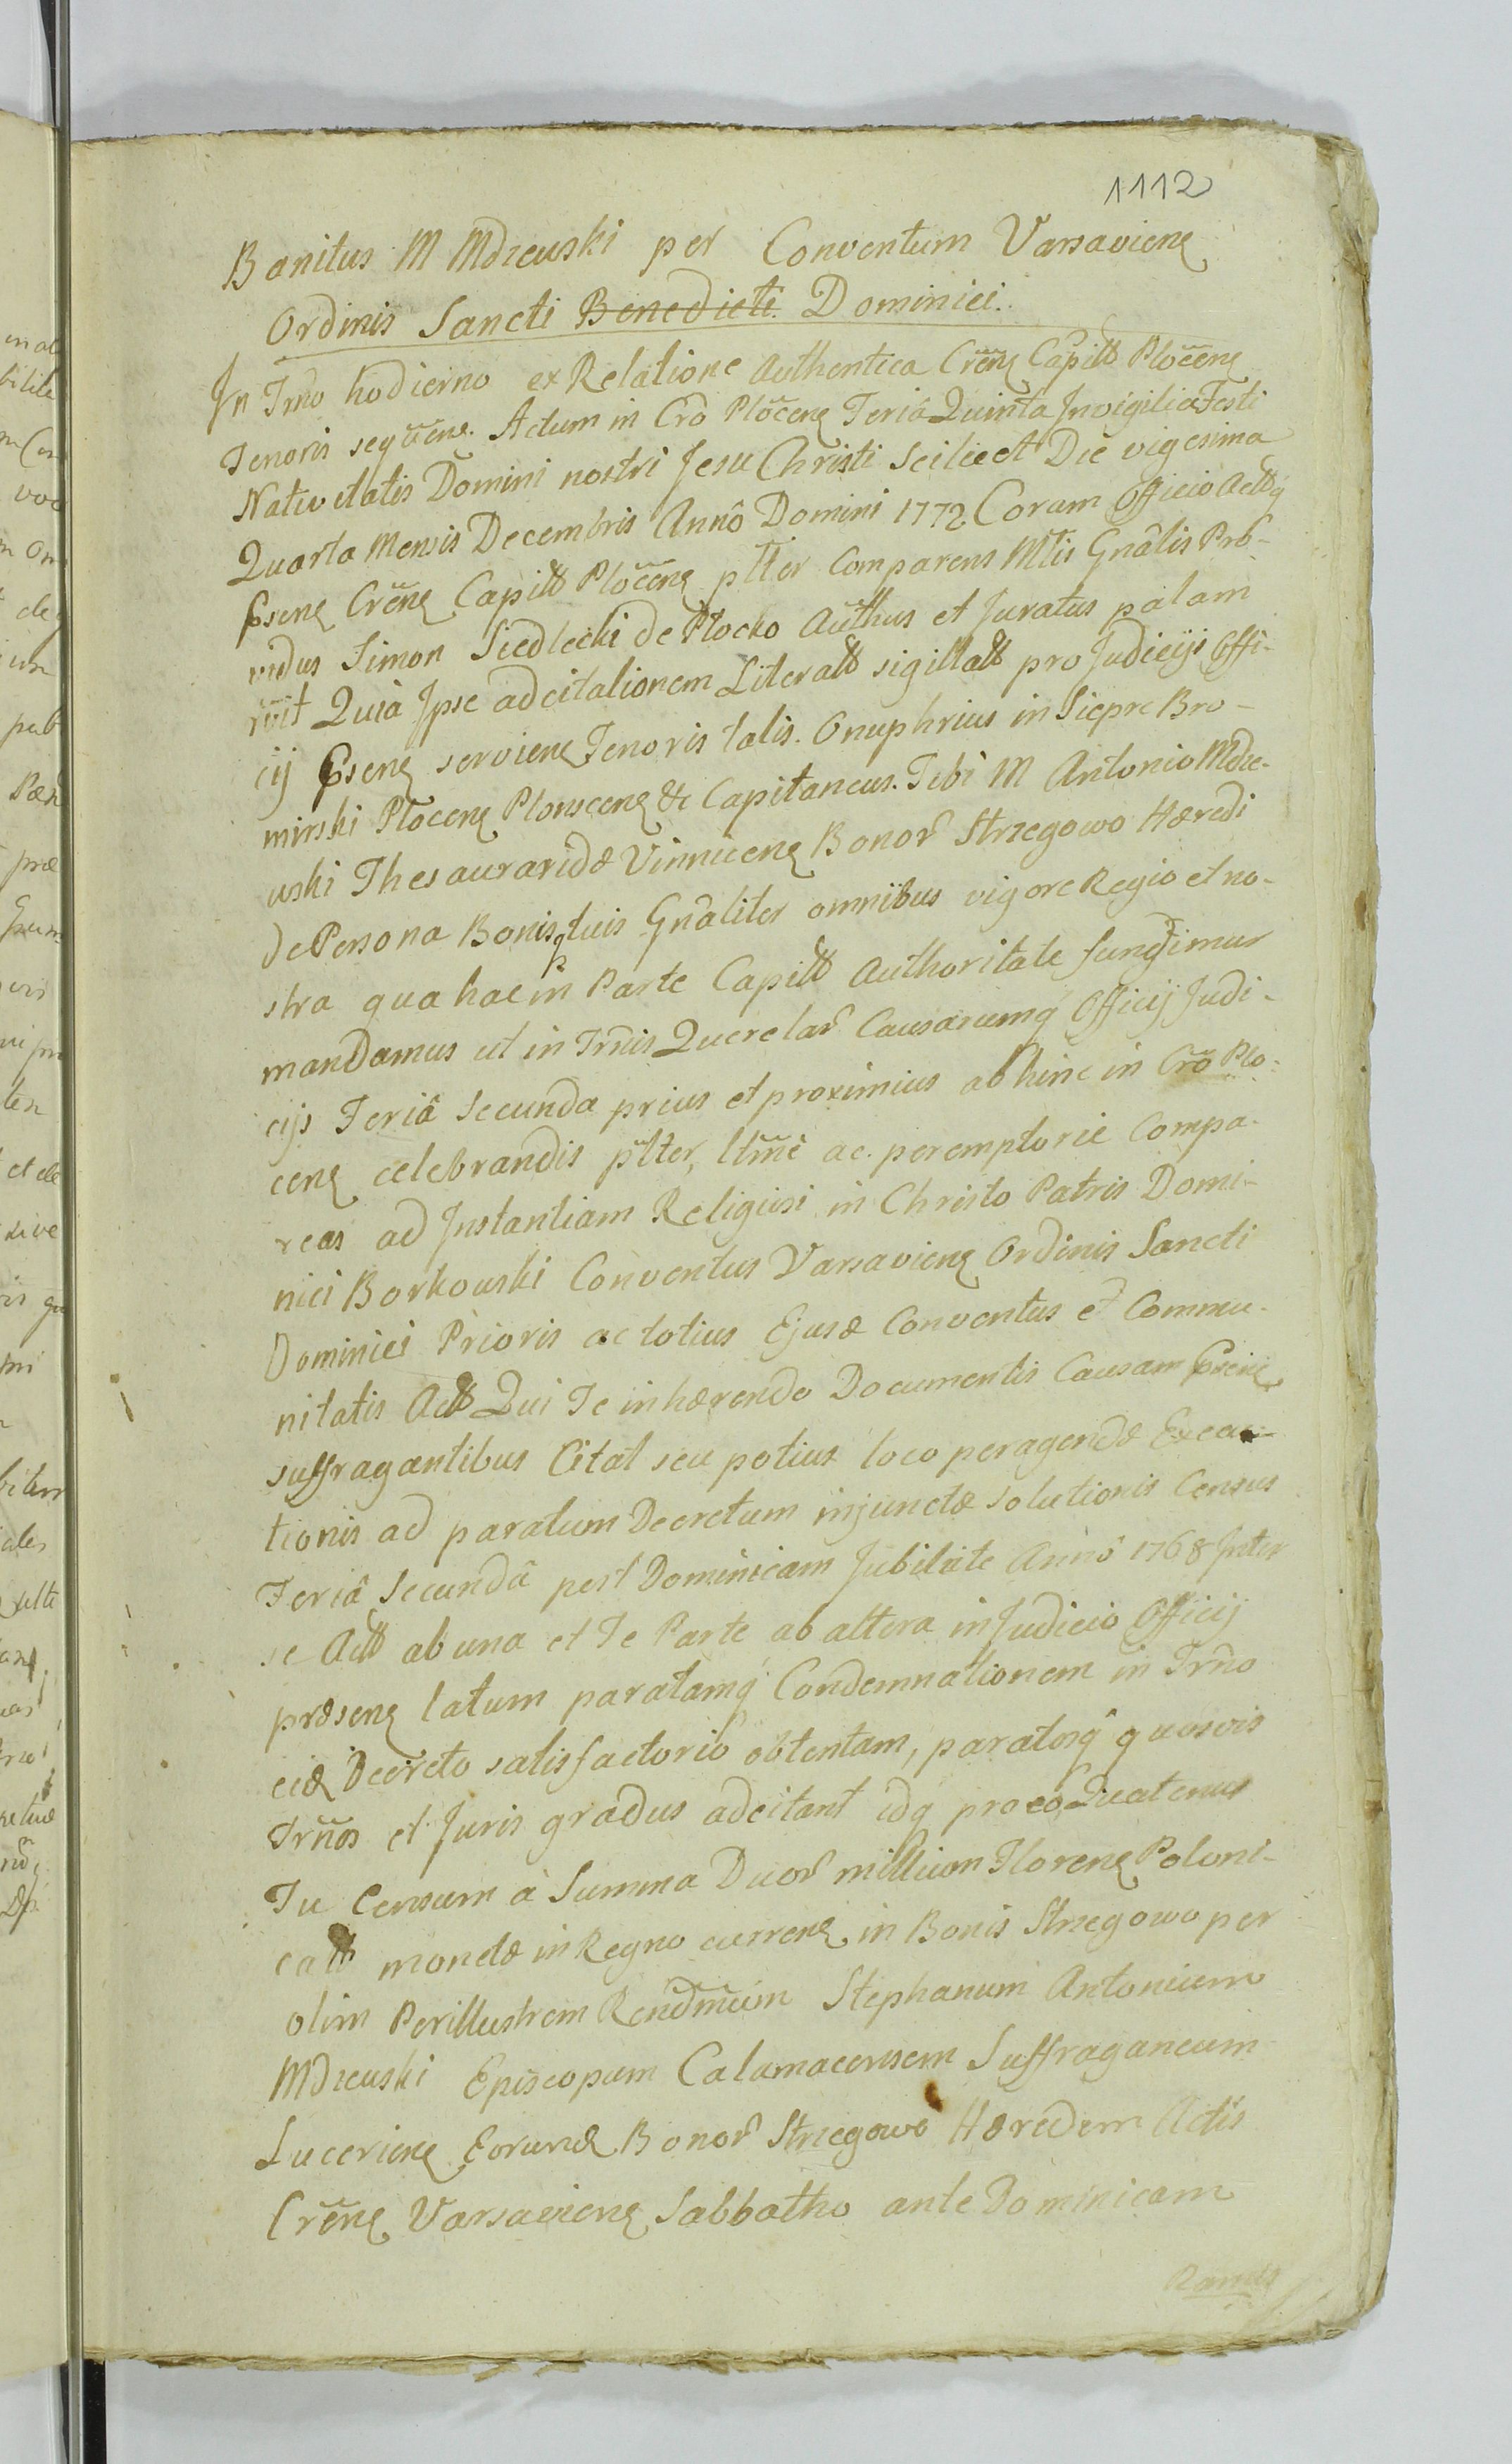 1112
Banitus M Mdzewski per Conventum Varsavieñ
Ordinis Sancti Benedicti Dominici.
In Trño hodierno ex Relatione Authentica Creñ Capitt Ploceñ
Tenoris sequeñ. Actum in Cro Ploceñ Feriâ Quinta In vigilia Festi
Nativitatis Domini nostri Jesu Christi Scilicet Die vigesima
Quarta Mensis Decembris Annô Domini 1772 Coram Officio Actisq
Pseñ Creñ Capitt Ploceñ pltter Comparens Mtis Gnâlis Pro-
vidus Simon Siedlecki de Płocko Authus et Juratus palam
rvit Quia Ipse ad citationem Literatt sigillatt pro Judicijs Offi-
cij Pseñ servieñ Tenoris talis. Onuphrius in Siepre Bro-
minski Ploceñ Plonsceñ &c Capitaneus. Tibi M Antonio Mdze-
wski Thesauraridæ Vinniceñ Bonor Strzegowo Hæredi
de Persona Bonisq tuis Gnâliter omnibus vigore Regio et no-
stra qua hac in Parte Capitt Authoritate fungimur
mandamus ut in Trñis Querelar Causarumq Officij Judi-
cijs Feriâ Secunda prius et proximius ab hinc in Cro Plo-
ceñ celebrandis pltter, ltime ac peremptorie Compa-
reas ad Instantiam Religiosi in Christo Patris Domi-
nici Borkowski Conventus Varsavieñ Ordinis Sancti
Dominici Prioris ac totius Ejusd Conventus et Commu-
nitatis Actt Qui Te inhærendo Documentis Causam Pseñ
suffragantibus Citat seu potius loco peragendæ Execu-
tionis ad paratum Decretum injunctæ solutionis Census
Feriâ Secundâ post Dominicam Jubilate Annô 1768 Inter
se Actt ab una et Te Parte ab altera in Judicio Officij
præseñ latum paratamq Condemnationem in Trño
eid Decreto satisfactorio obtentam, paratosq quosvis
Trños et Juris gradus adcitant idq pro eo, Quatenus
Tu Censum à Summa Duor millium Floreñ Poloni-
catt monetæ in Regno curreñ in Bonis Strzegowo per
olim Perillustrem Rendmum Stephanum Antonium
Mdzewski Episcopum Calamacensem Suffraganeum
Lucerieñ Eorund Bonor Strzegowo Hæredem Actis
Creñ Varsavieñ Sabbatho ante Dominicam
Ramis